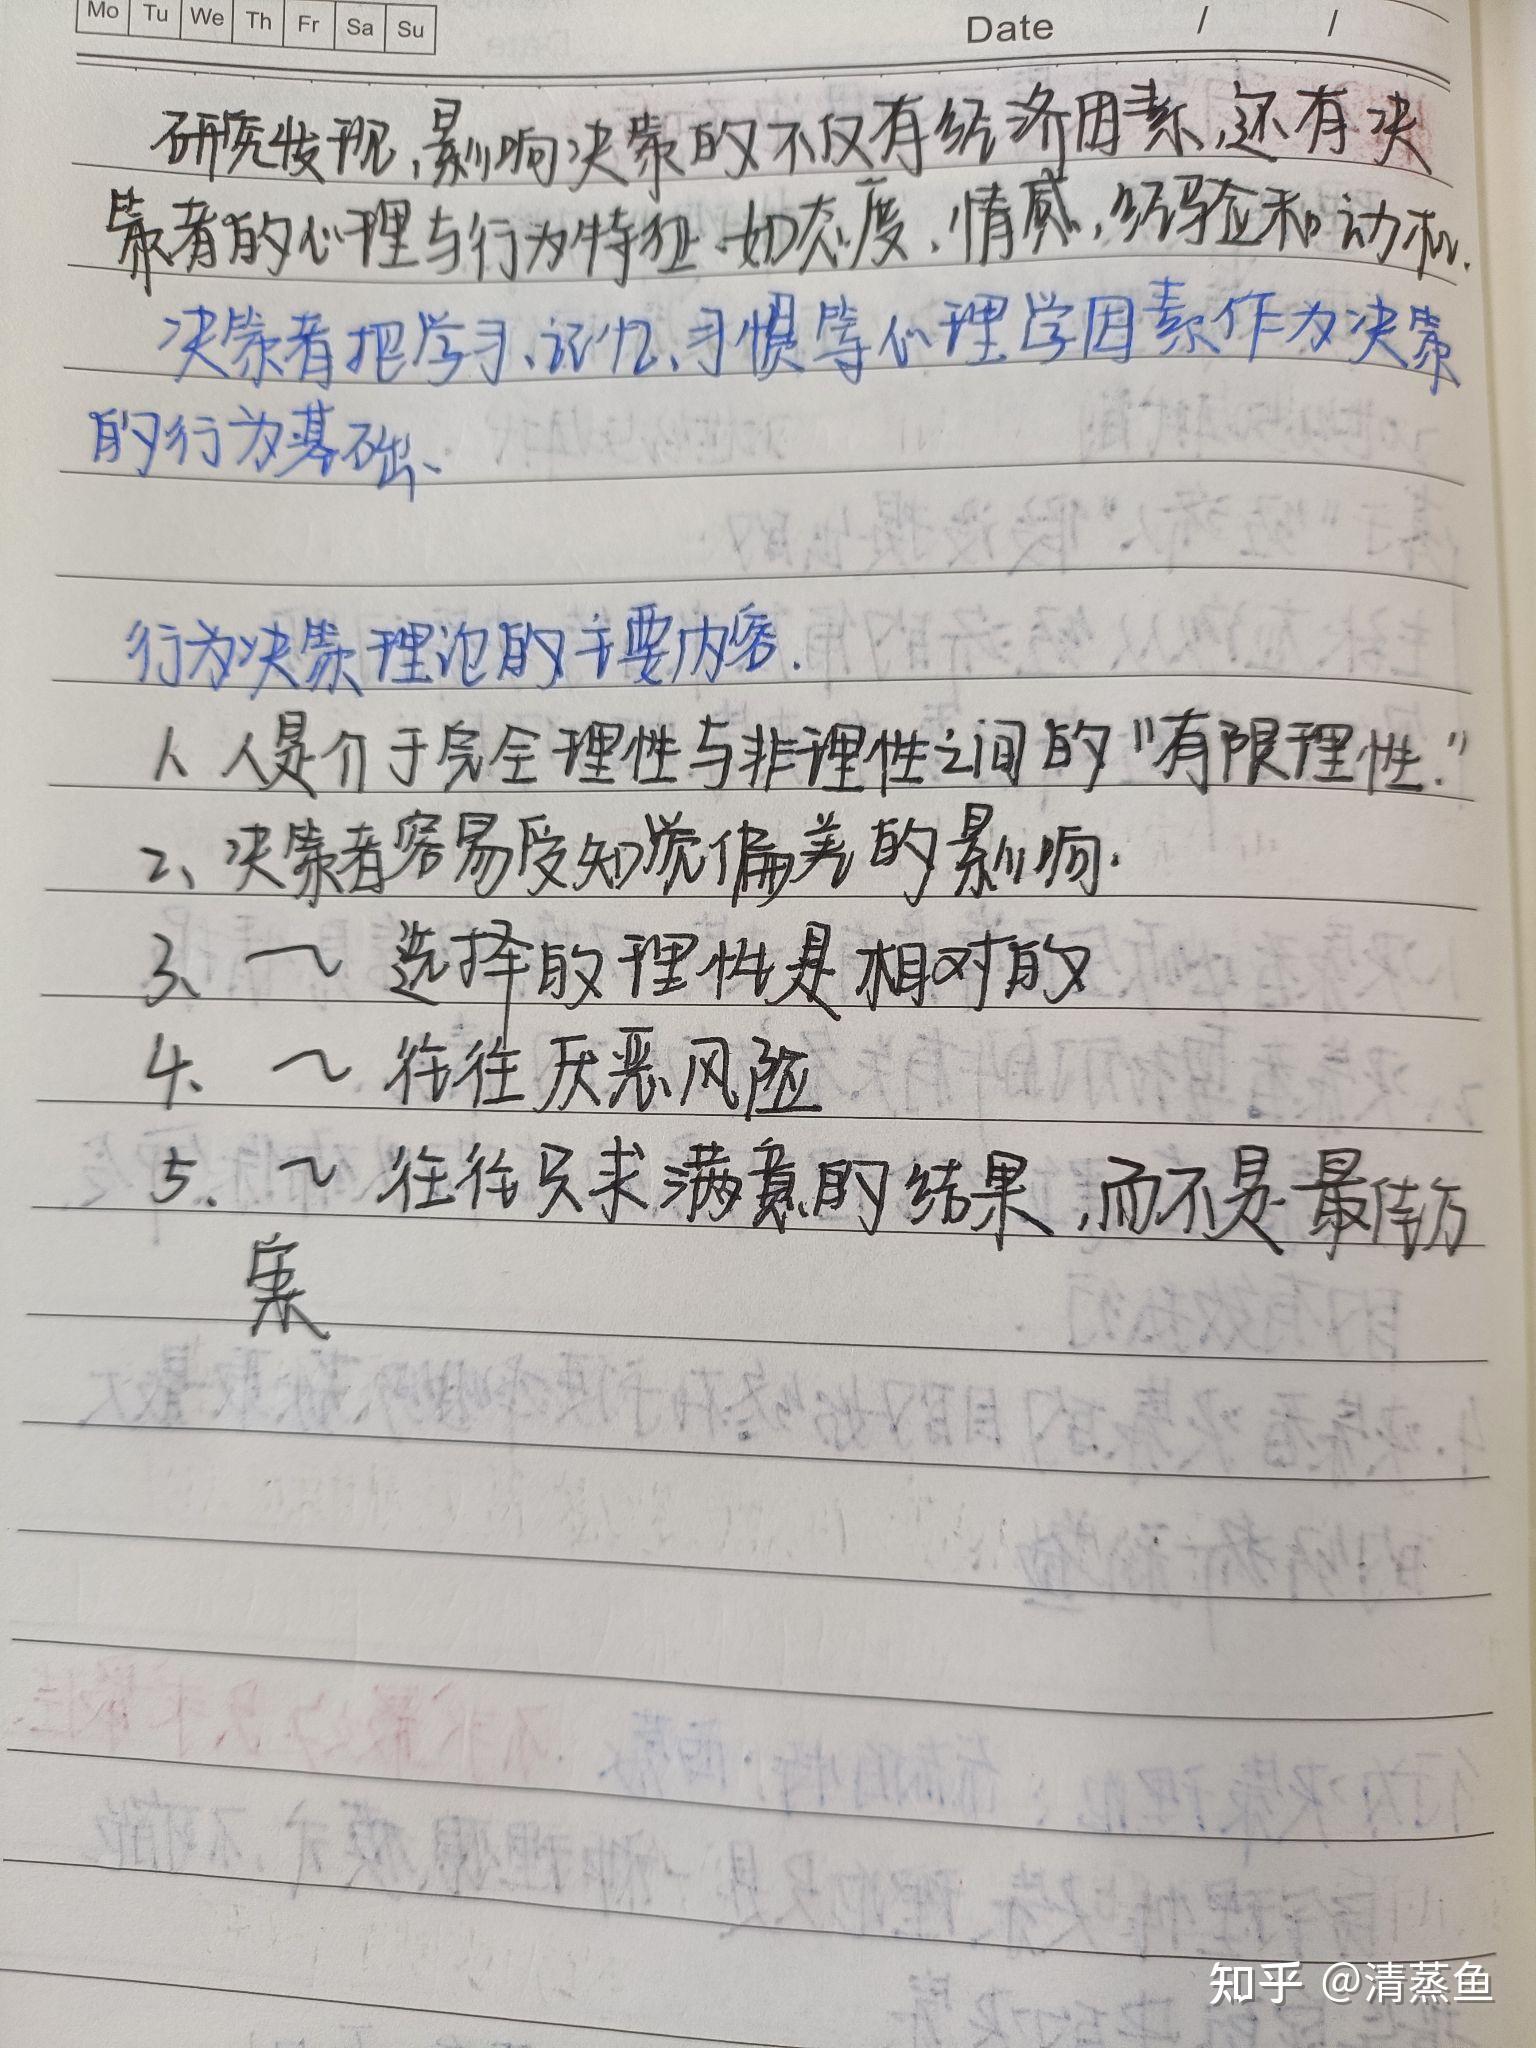 Mo Tu We Th Fr Sa Su
Date / /
研究发现,影响决策的不仅有经济因素,还有决
策者的心理与行为特征.如态度、情感,经验和动机.
决策者把学习、记忆、习惯等心理学因素作为决策
的行为基础、
行为决策理论的主要内容.
1、人是介于完全理性与非理性之间的"有限理性."
2、决策者容易受知觉偏差的影响.
3、~ 选择的理性是相对的
4、~ 往往厌恶风险
5、~ 往往只求满意的结果,而不是最佳方
案
知乎 @清蒸鱼